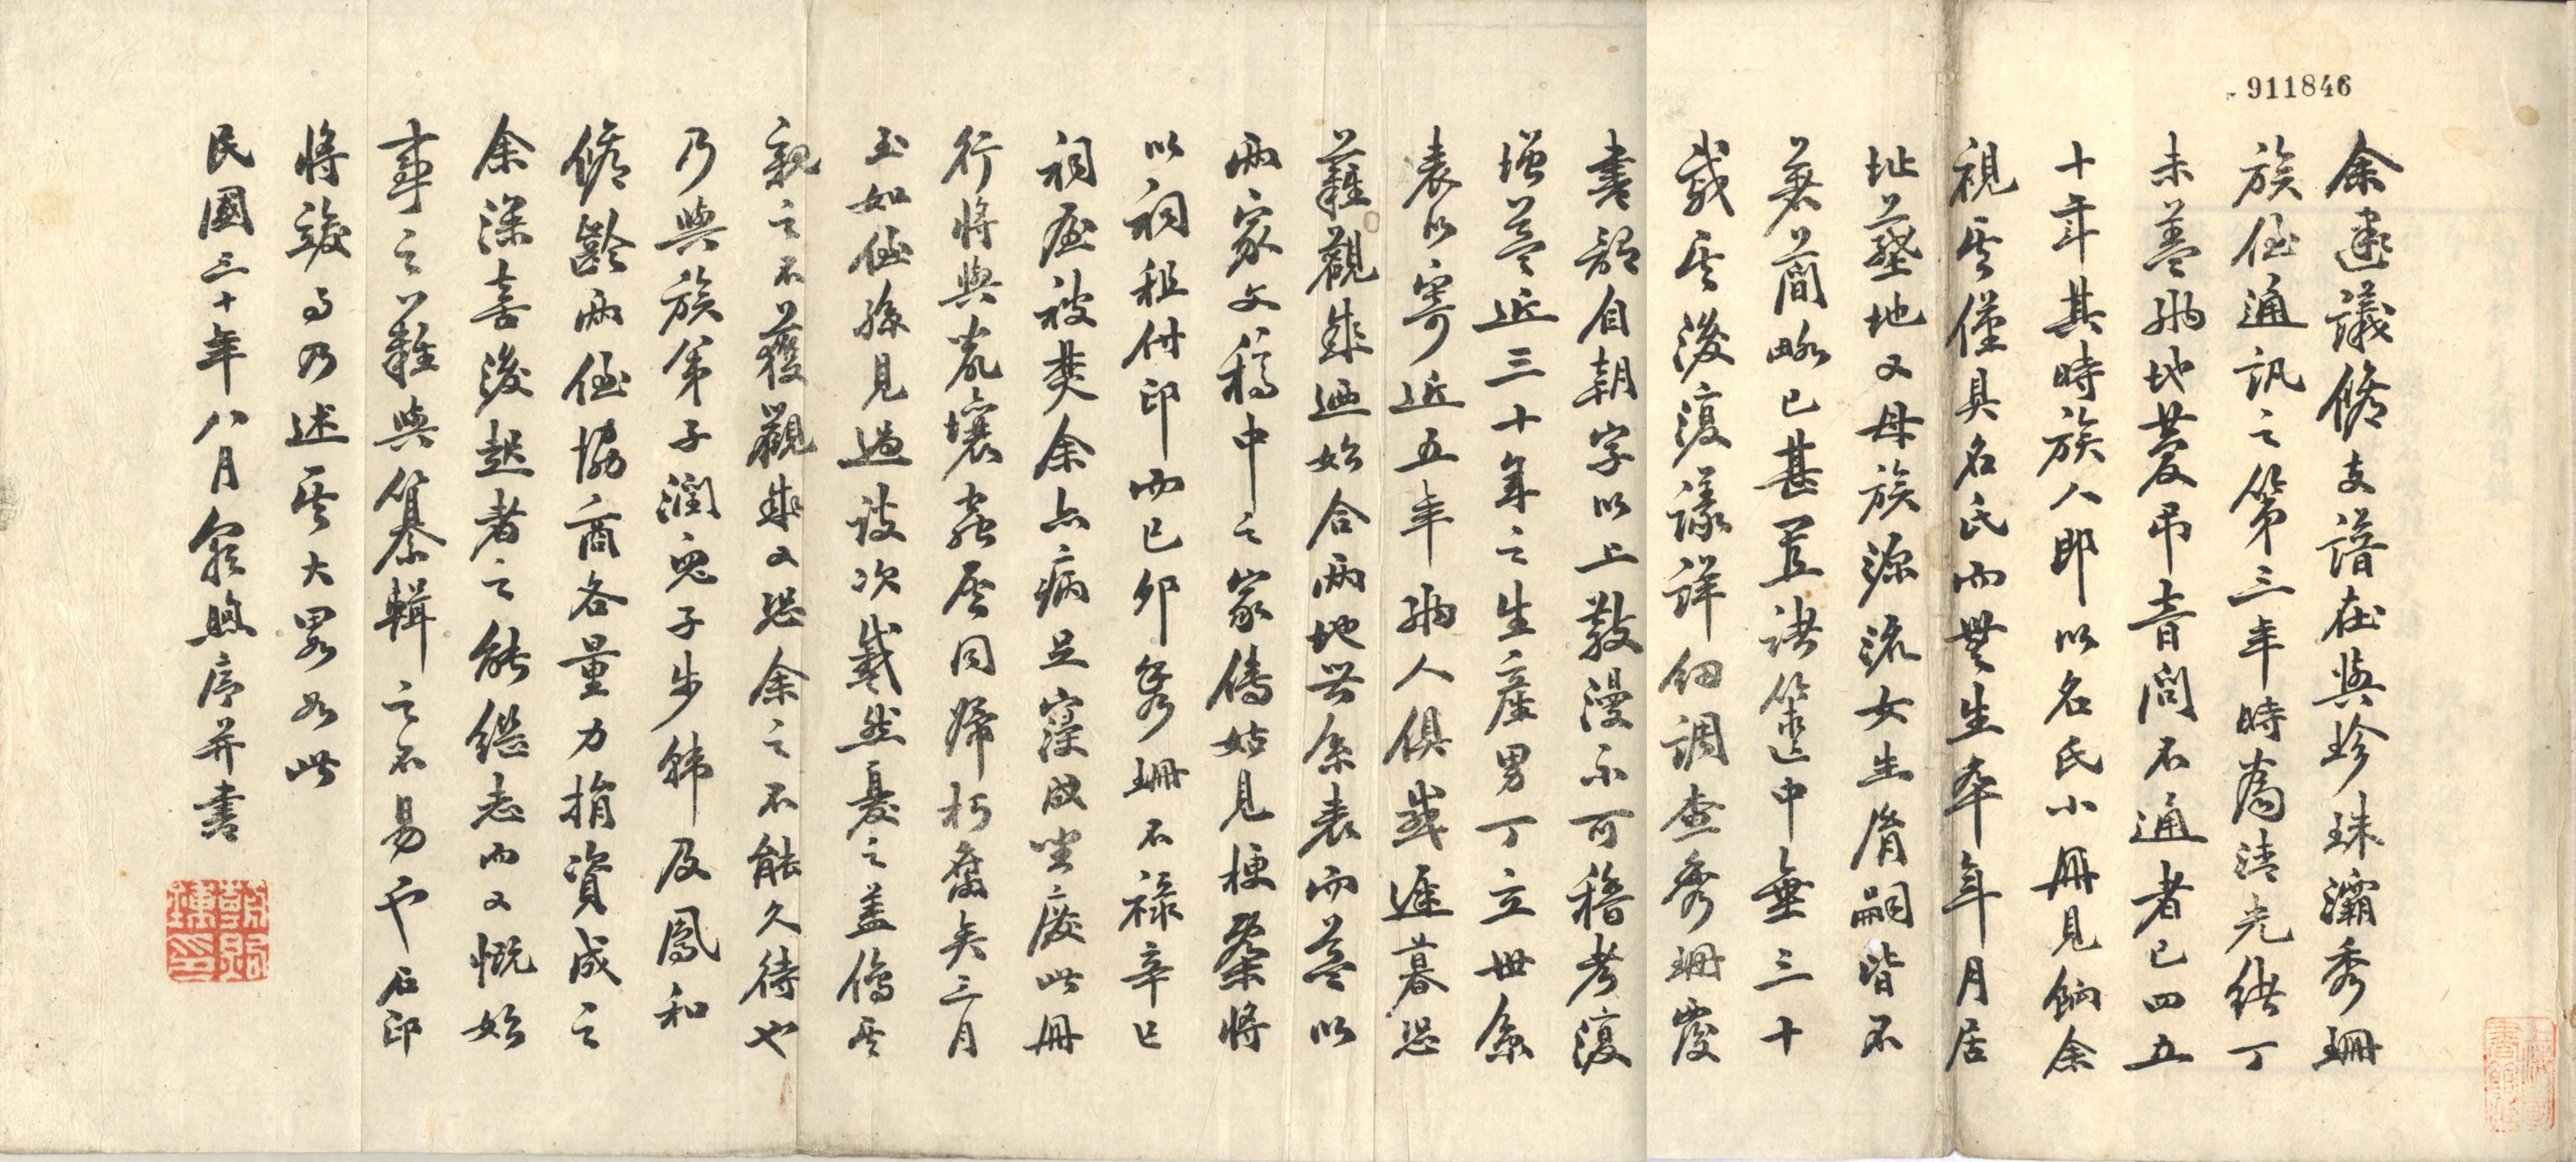 911846
余建議修支譜在與珍珠灞秀珊
族侄通訊之第三年時為清光緒丁
未蓋鄉地慶弔音問不通者已四五
十年其時族人即以名氏小冊見餉余
視其僅具名氏而無生卒年月居
址塋地又母族源流女生脩嗣皆不
著簡略已甚置諸篋中垂三十
歲其後復議詳細調查秀珊覆
書謂自朝字以上散漫不可稽考復
增益近三十年之生產男丁立世系
表以寄近五年鄉人俱歲遲暮恐
難觀成迺始合兩地世系表而益以
兩家文稿中之家傳姑見梗槩將
以祠租付印而已卯冬秀珊不祿辛巳
祠屋被焚余亦病足寖成坐廢此冊
行將與鼠壤蟲同歸朽腐矣三月
玉如侄孫見過談次戚然憂之蓋傷其
親之不獲觀成又恐余之不能久待也
乃與族弟子潤兒子步韓及鳳和
修齡兩侄協商各量力捐資成之
余深喜後起者之能繼志而又慨始
事之難與纂輯之不易也石印
將竣乃述其大畧如此
民國三十年八月序并書